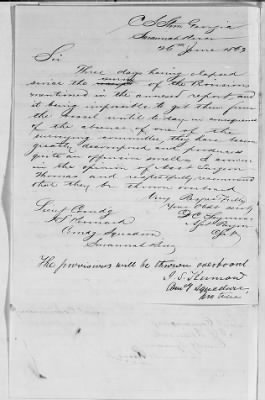 C. S. Stm. Georgia
Savannah River
26th June 1863
Sir
Three days having elapsed
since the survey of the Provisions
mentioned in the annexed report, and
it being impossible to get them from
the vessel until to day in consequence
of the absence of one of the
surveying committee, they have become
greatly decomposed and produces
quite an offensive smell. I concur
in the opinion of Asst Surgeon
Thomas and respectfully recommend
that they be thrown overboard
Very Respectfully
Your Obt Servt
Lieut Comdg
Comdg Squadron
Savannah River
The provisions will be thrown overboard
Comdg Squadron